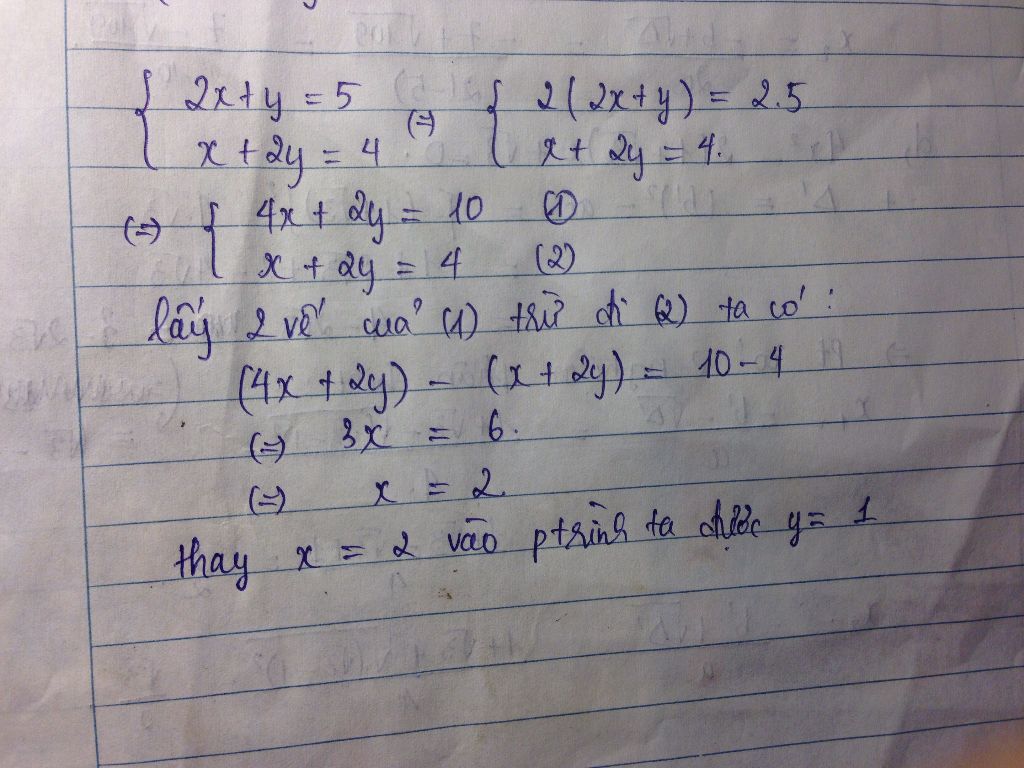 { 2x+y = 5 (=) { 2(2x+y) = 2.5
x + 2y = 4 x + 2y = 4.
(=) { 4x + 2y = 10 (1)
x + 2y = 4 (2)
lấy 2 vế của (1) trừ đi (2) ta có :
(4x + 2y) - (x + 2y) = 10 - 4
(=) 3x = 6.
(=) x = 2.
thay x = 2 vào ptrình ta được y = 1